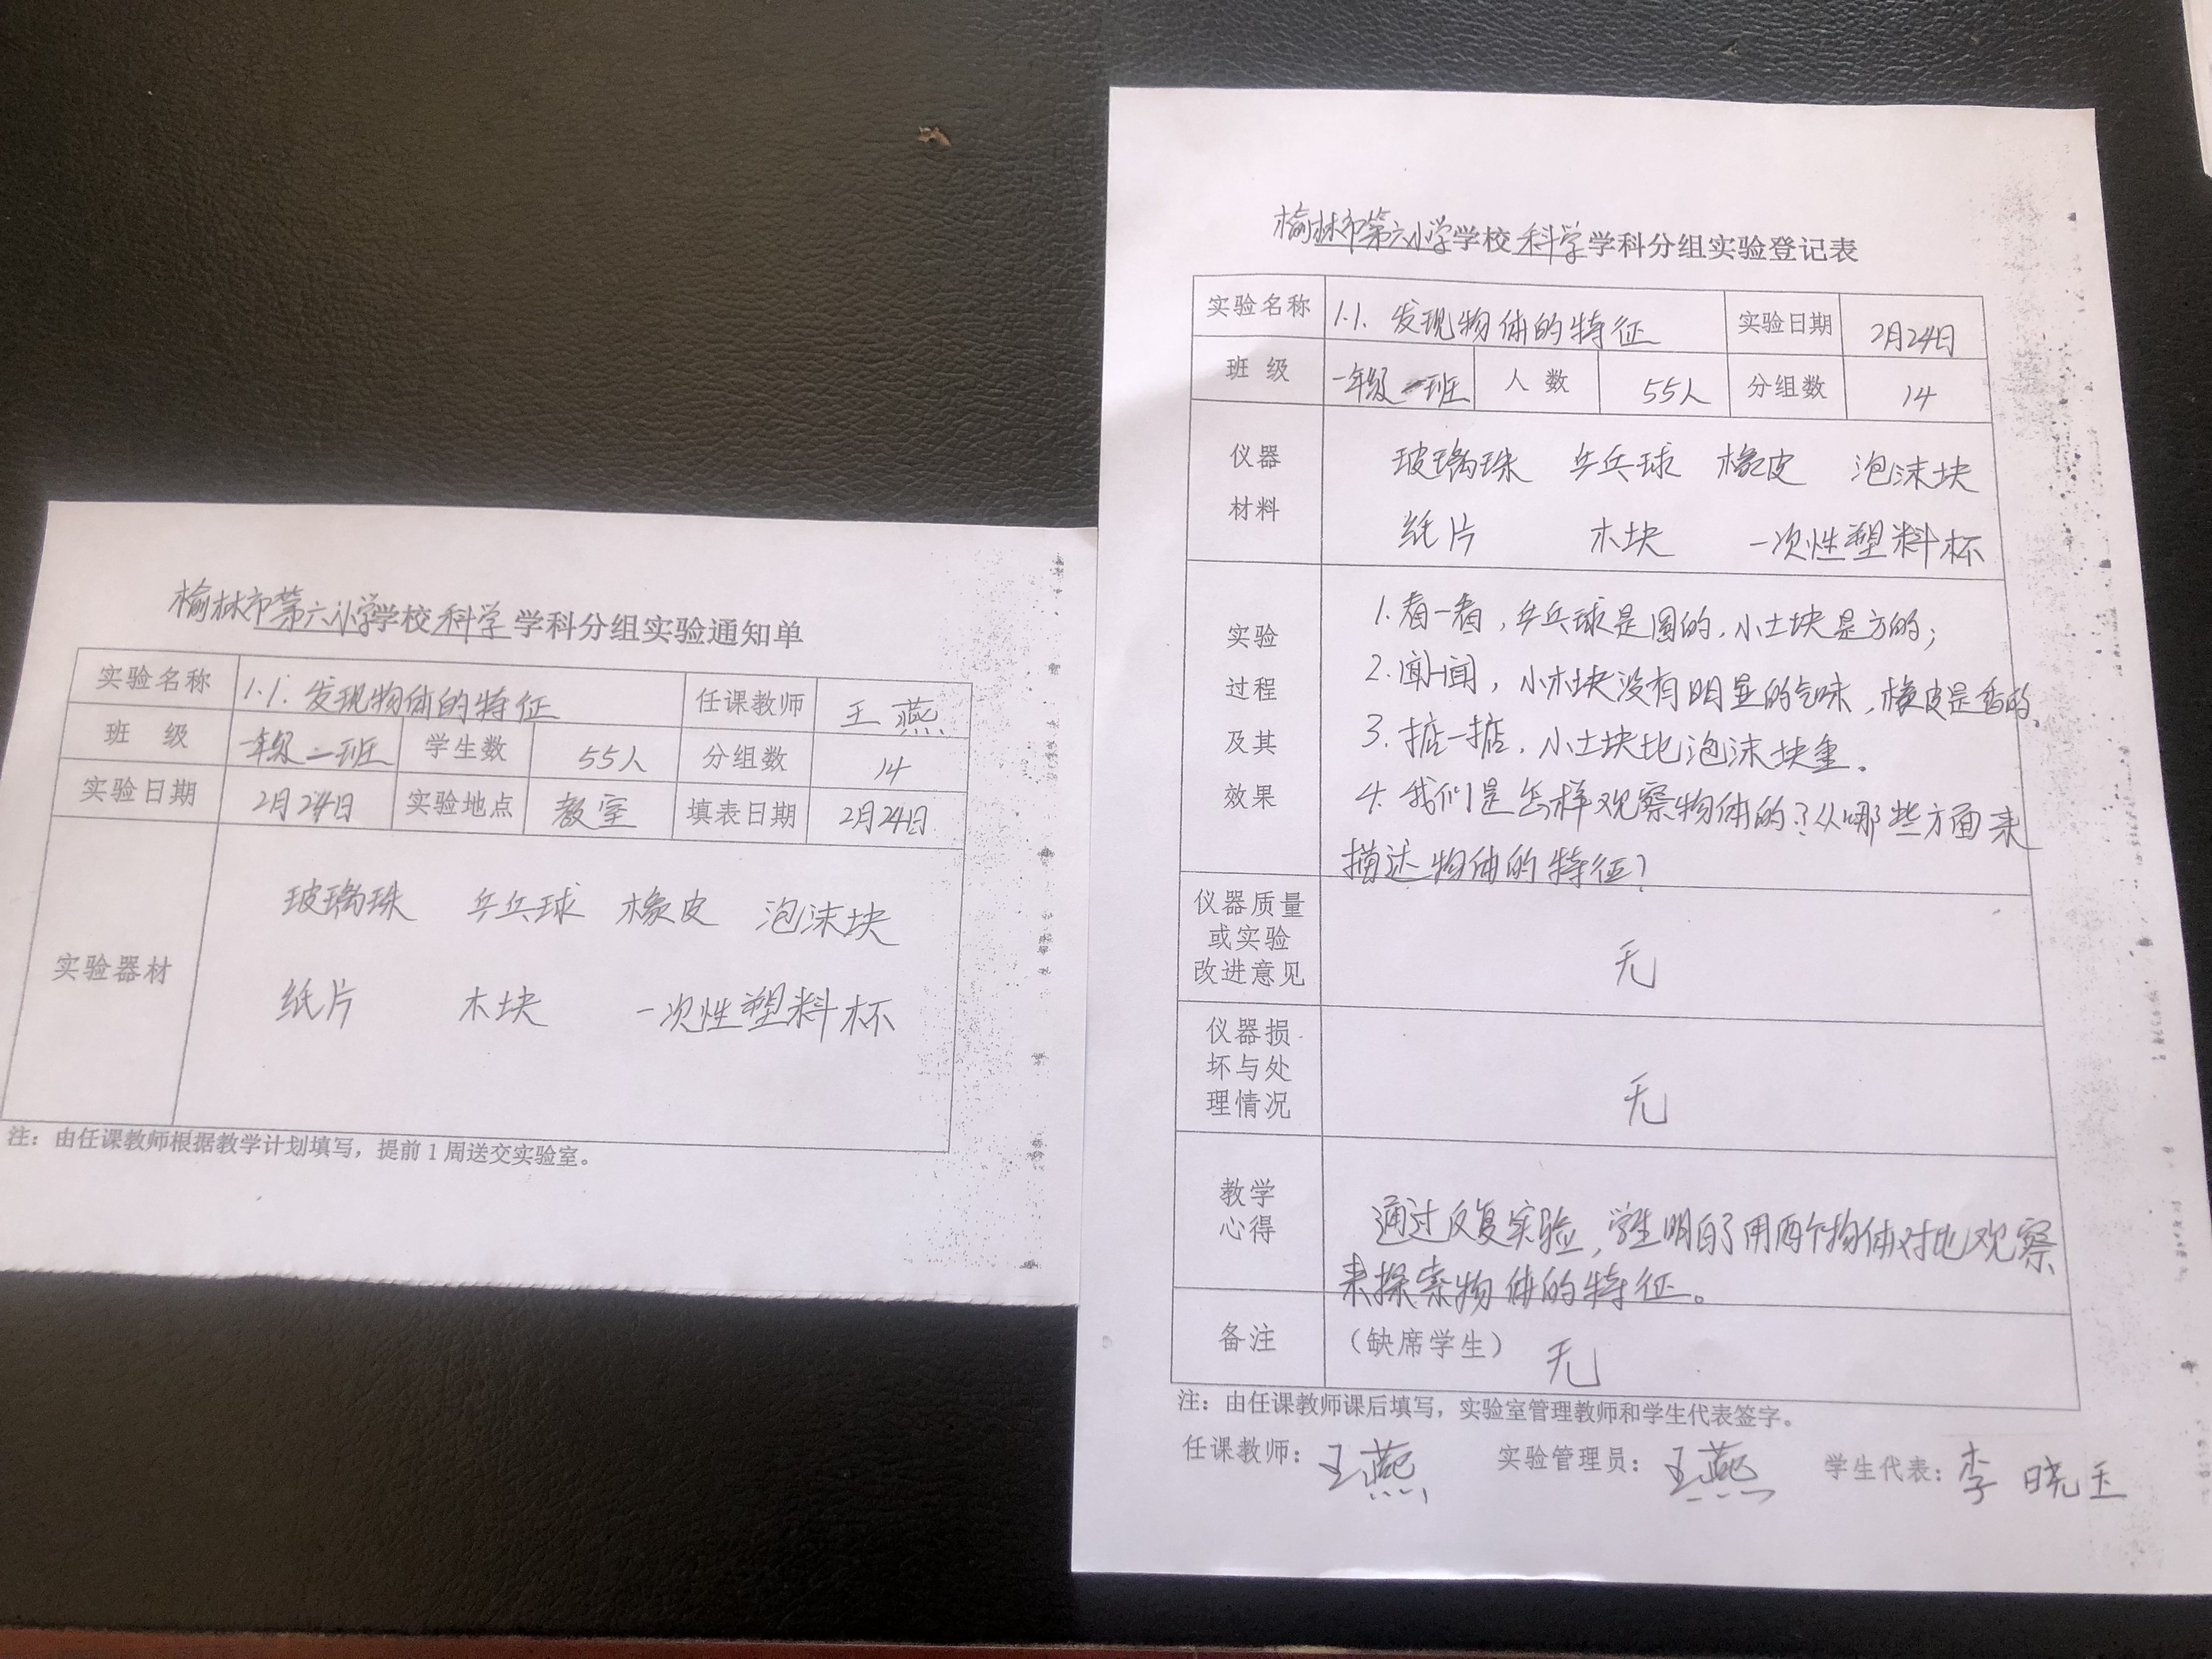 榆林市第六小学学校科学学科分组实验通知单
实验名称 1.1.发现物体的特征 任课教师 王燕
班 级 一年级一班 学生数 55人 分组数 14
实验日期 2月24日 实验地点 教室 填表日期 2月24日
实验器材
玻璃珠 乒乓球 橡皮 泡沫块
纸片 木块 一次性塑料杯
注：由任课教师根据教学计划填写，提前1周送交实验室。
榆林市第六小学学校科学学科分组实验登记表
实验名称 1.1.发现物体的特征 实验日期 2月24日
班 级 一年级一班 人 数 55人 分组数 14
仪器
材料
玻璃珠 乒乓球 橡皮 泡沫块
纸片 木块 一次性塑料杯
实验
过程
及其
效果
1.看一看，乒乓球是圆的，小土块是方的；
2.闻一闻，小木块没有明显的气味，橡皮是香的。
3.掂一掂，小土块比泡沫块重。
4.我们是怎样观察物体的？从哪些方面来
描述物体的特征？
仪器质量
或实验
改进意见
无
仪器损
坏与处
理情况
无
教学
心得
通过反复实验，学生明白了用两个物体对比观察
来探索物体的特征。
备注 （缺席学生） 无
注：由任课教师课后填写，实验室管理教师和学生代表签字。
任课教师：王燕 实验管理员：王燕 学生代表：李晓玉